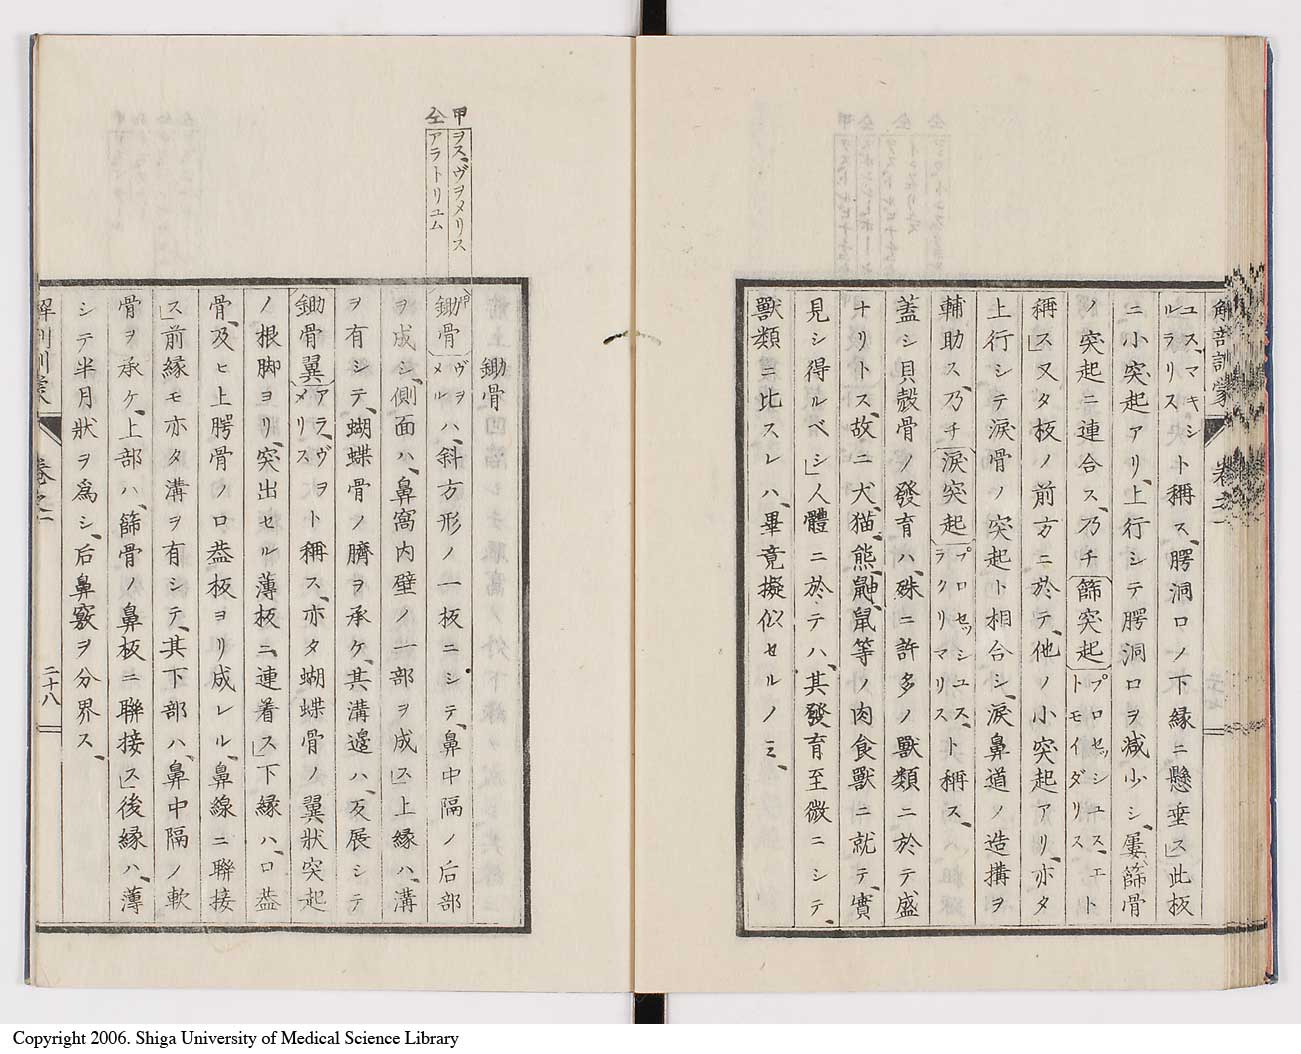 ユスマキシ
ルラリス ト稱ス、腭洞口ノ下縁ニ懸垂ス」此板
ニ小突起アリ、上行シテ腭洞口ヲ減少シ、屢、篩骨
ノ突起ニ連合ス、乃チ篩突起プロセッシユス、エト
トモイダリス
稱ス」又タ板ノ前方ニ於テ、他ノ小突起アリ、亦タ
上行シテ涙骨ノ突起ト相合シ、涙鼻道ノ造搆ヲ
輔助ス、乃チ涙突起プロセッシユス、
ラクリマリス ト稱ス、
蓋シ貝殼骨ノ發育ハ、殊ニ許多ノ獸類ニ於テ盛
ナリトス、故ニ犬、猫、熊、鼬、鼠等ノ肉食獸ニ就テ、實
見シ得ルベシ」人體ニ於テハ、其發育至微ニシテ、
獸類ニ比スレハ、畢竟擬似セルノミ、
解剖訓蒙 卷之二
甲 ヲス、ヴヲメリス
仝 アラトリユム
鋤骨
鋤骨ヴヲ
メル ハ、斜方形ノ一板ニシテ、鼻中隔ノ后部
ヲ成シ、側面ハ、鼻窩内壁ノ一部ヲ成ス」上縁ハ、溝
ヲ有シテ、蝴蝶骨ノ臍ヲ承ケ、其溝邊ハ、反展シテ
鋤骨翼アラ、ヴヲ
メリス ト稱ス、亦タ蝴蝶骨ノ翼狀突起
ノ根脚ヨリ、突出セル薄板ニ、連着ス」下縁ハ、口蓋
骨、及ヒ上腭骨ノ口蓋板ヨリ成レル、鼻線ニ聯接
ス」前縁モ亦タ溝ヲ有シテ、其下部ハ、鼻中隔ノ軟
骨ヲ承ケ、上部ハ、篩骨ノ鼻板ニ聯接ス」後縁ハ、薄
シテ半月狀ヲ爲シ、后鼻竅ヲ分界ス、
解剖訓蒙 卷之二 二十八
Copyright 2006. Shiga University of Medical Science Library